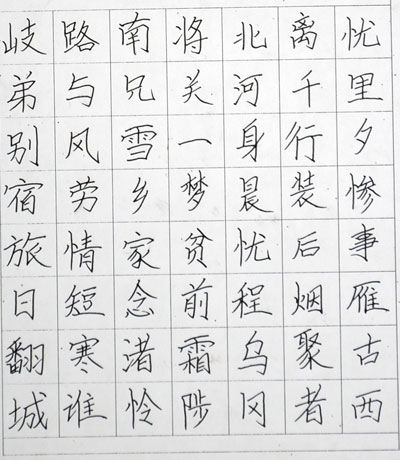 岐路南将北离忧
弟与兄关河千里
别风雪一身行夕
宿劳乡梦晨装惨
旅情家贫忧后事
日短念前程烟雁
翻寒渚霜乌聚古
城谁怜陟冈者西